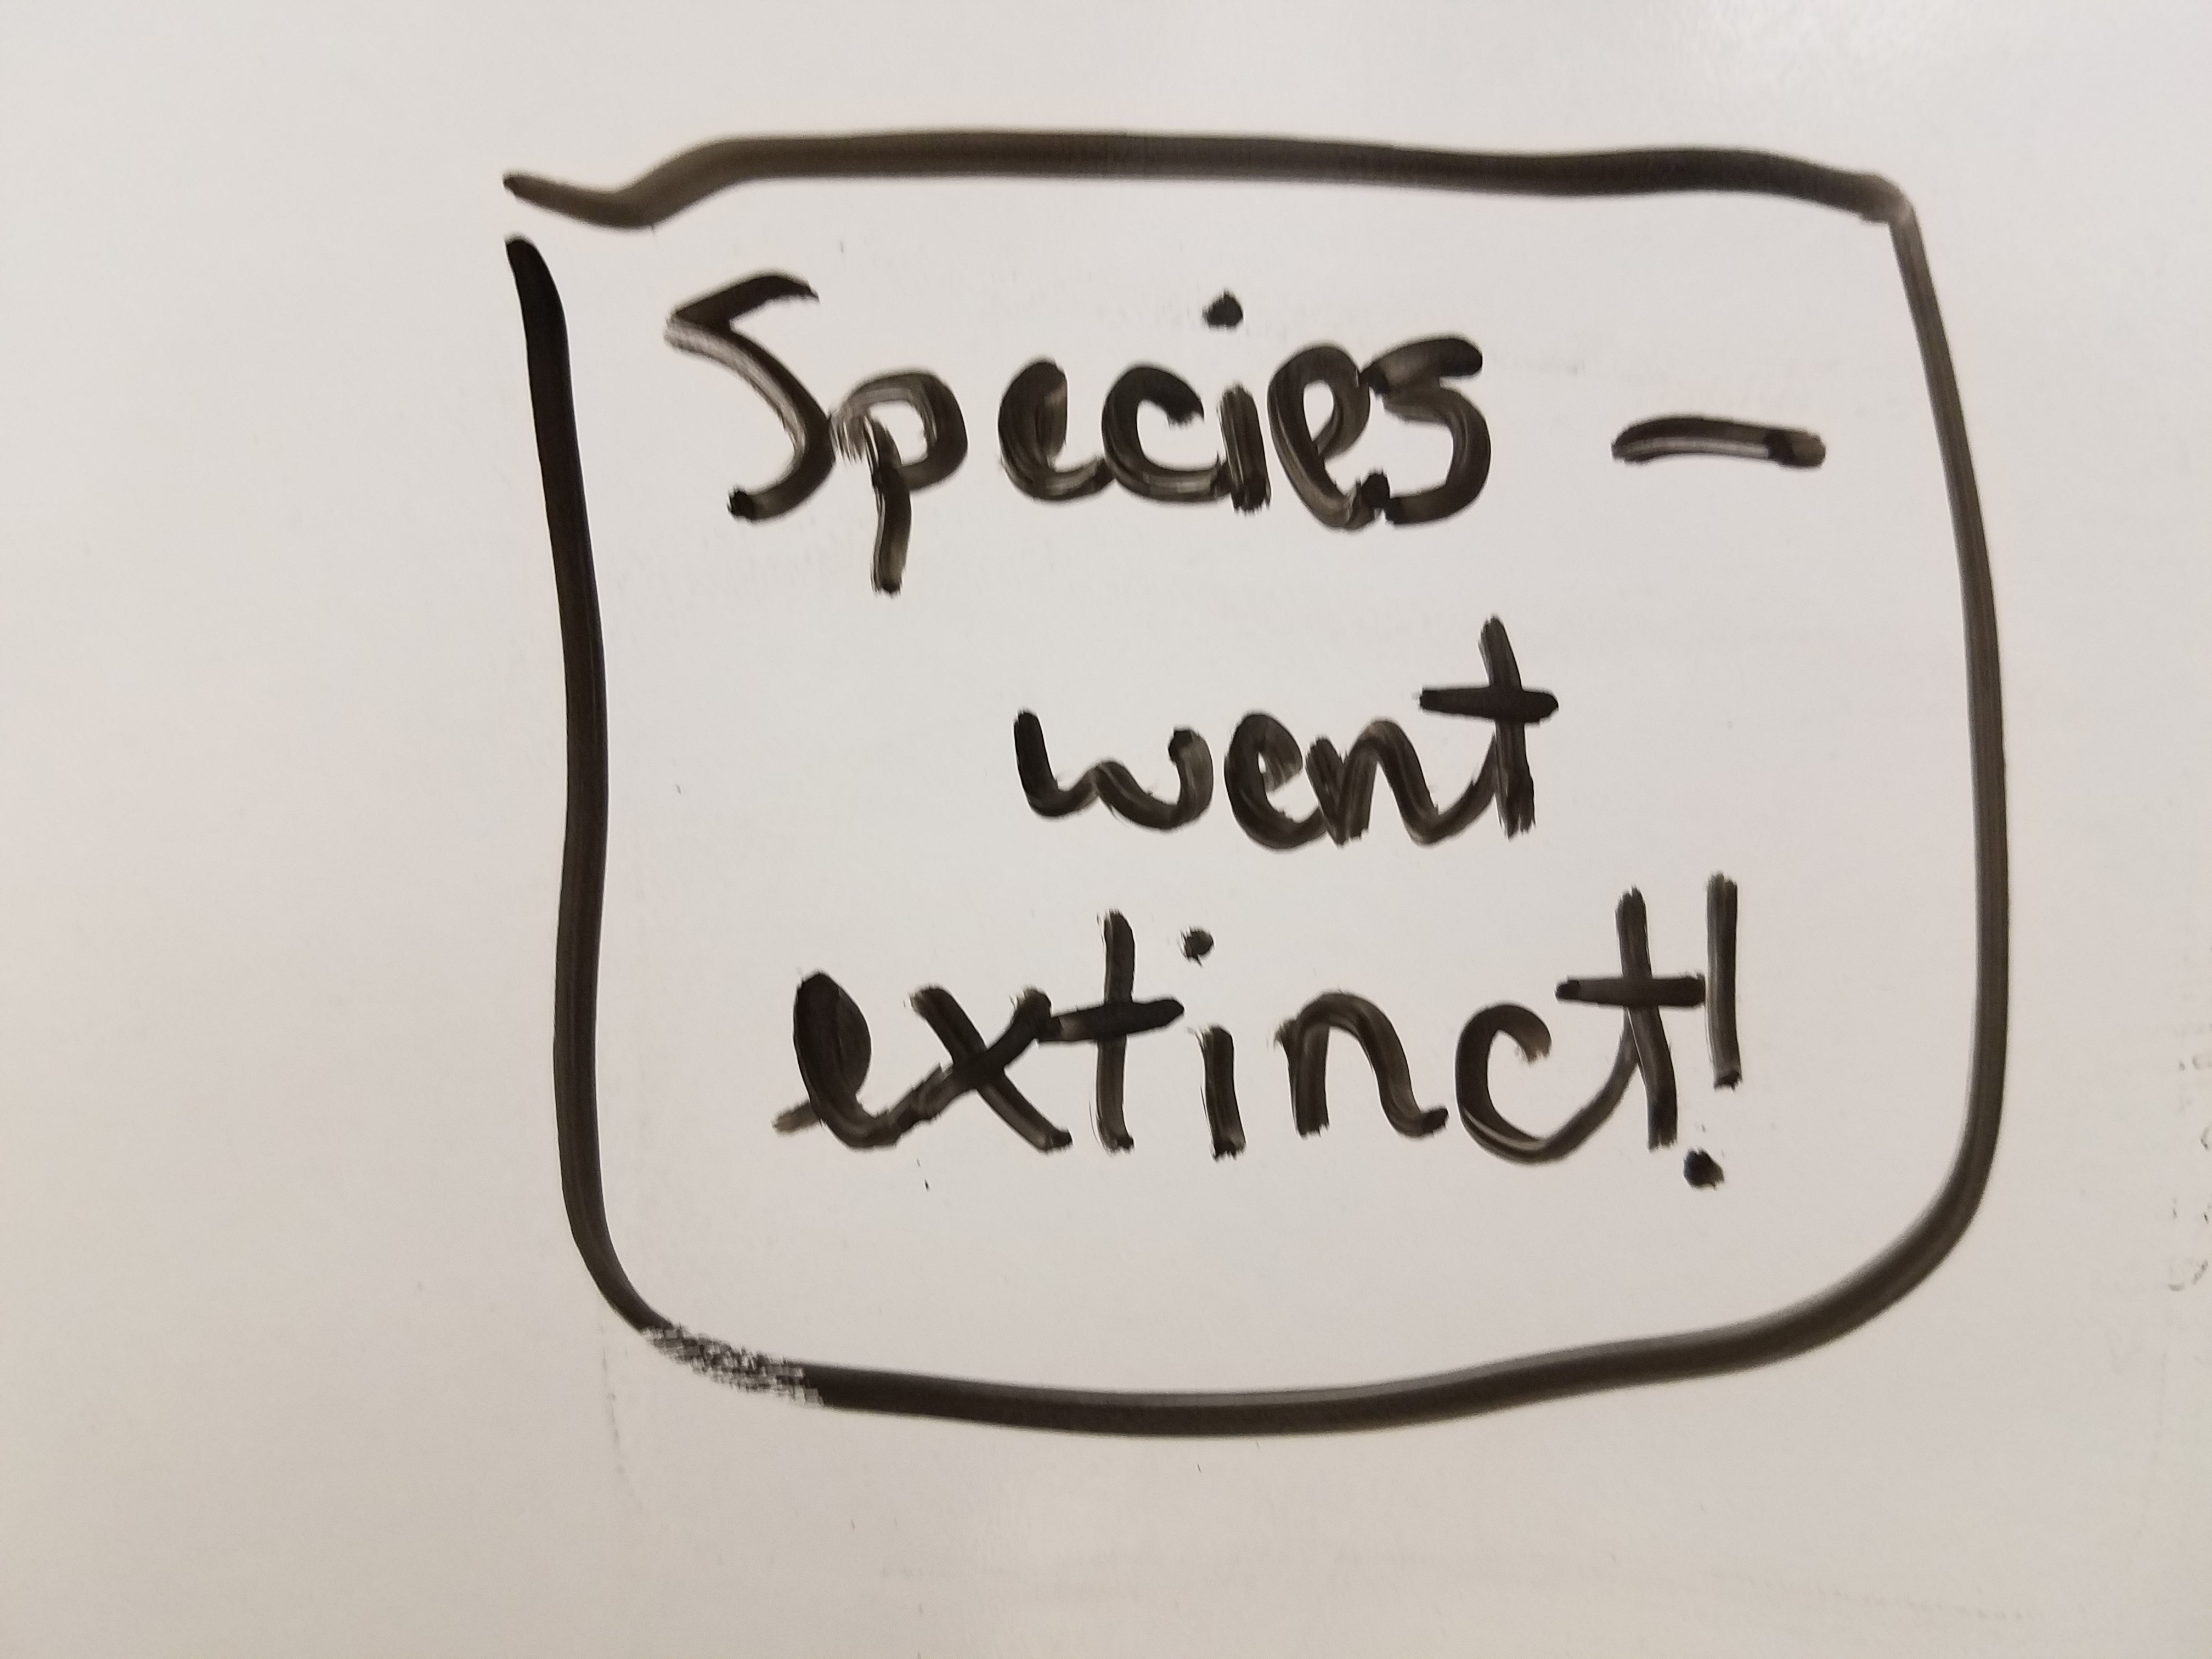 Species –
went
extinct!